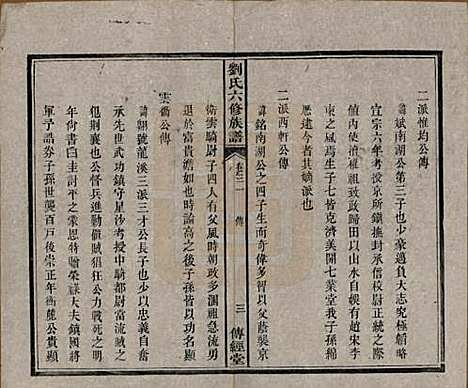 二派惟均公傳
諱斌南湖公第三子也少豪邁負大志究極韜畧
宣宗六年考沒京所鎮撫封承信校尉正統二年
內使清查粗祖致鼓歸田以山水自娛有趙宋李
東之風焉生子七皆克濟美開七業堂我子孫綿
歷建今者其嫡派也
二派西軒公傳
諱銘南湖公之四子生而奇偉多智以父蔭襲京
衛雲騎尉子四人有父風時朝政多濁祖急流勇
退於富貴澹如也時論高之後子孫皆以功名顯
雲衢公傳
諱翺號龍溪三派三才公長子也少以忠義自許
承先世武功鎮守星沙考授中騎都尉當流賊之
犯荊襄也公督兵進勦賊猖狂公力戰死之明
年尚書曰圭討平之蒙恩特贈榮祿大夫鎮國將
軍予誥券子孫世襲百戶後崇正年衡龍公貴顯
劉氏六修族譜
卷之二
傳
三
傳經堂